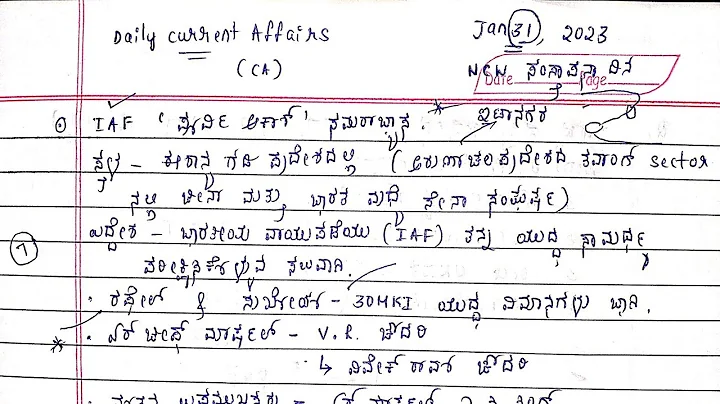 Daily Current Affairs
Jan 31, 2023
(CA)
NCW ಸಂಸ್ಥಾಪನಾ ದಿನ
Date Page
IAF 'ಪೂರ್ವಿ ಆಕಾಶ್' ಸಮರಾಭ್ಯಾಸ.
ಸ್ಥಳ - ಈಶಾನ್ಯ ಗಡಿ ಪ್ರದೇಶದಲ್ಲಿ (ಅರುಣಾಚಲ ಪ್ರದೇಶದ ತವಾಂಗ್ sector
ನಲ್ಲಿ ಚೀನಾ ಮತ್ತು ಭಾರತ ಮಧ್ಯೆ ಸೇನಾ ಸಂಘರ್ಷ)
7
ಉದ್ದೇಶ - ಭಾರತೀಯ ವಾಯುಪಡೆಯು (IAF) ತನ್ನ ಯುದ್ಧ ಸಾಮರ್ಥ್ಯ
ಪರೀಕ್ಷಿಸಿಕೊಳ್ಳುವ ಸಲುವಾಗಿ.
· ರಫೇಲ್ & ಸುಖೋಯ್ - 30MKI ಯುದ್ಧ ವಿಮಾನಗಳು ಭಾಗಿ.
* · ಏರ್ ಚೀಫ್ ಮಾರ್ಷಲ್ - V.R. ಚೌದರಿ
↳ ವಿವೇಕ್ ರಾಮ್ ಚೌದರಿ